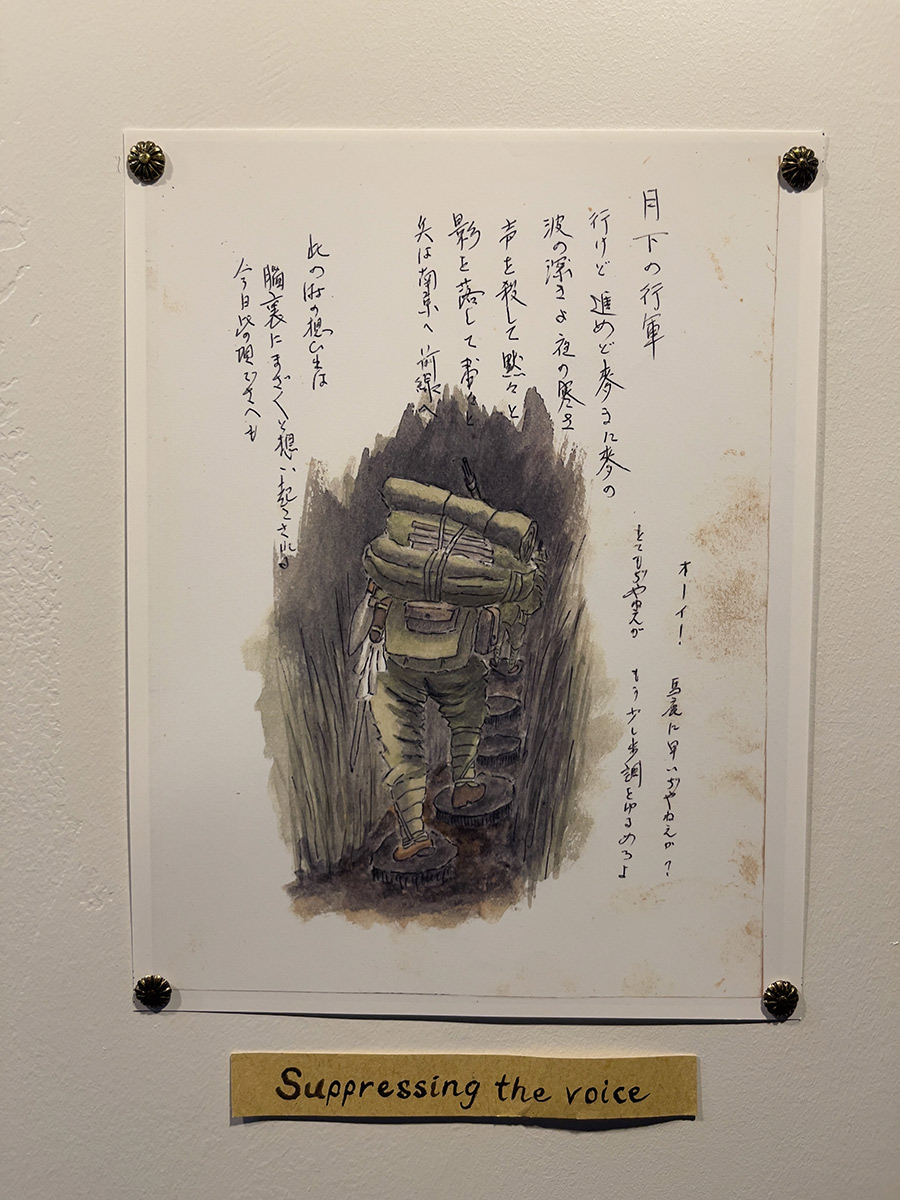 月下の行軍
行けど進めど麥また麥の
波の深さよ夜の寒さ
声を殺して黙々と
影を落して粛々と
兵は南京へ前線へ
此の時の想い出は
脳裏にまざ〱と想い起こされる
今日此の唄
オーイ！ 馬鹿に早いぢやねえか？
とてもぢやねえが もう少し歩調をゆるめろよ
Suppressing the voice